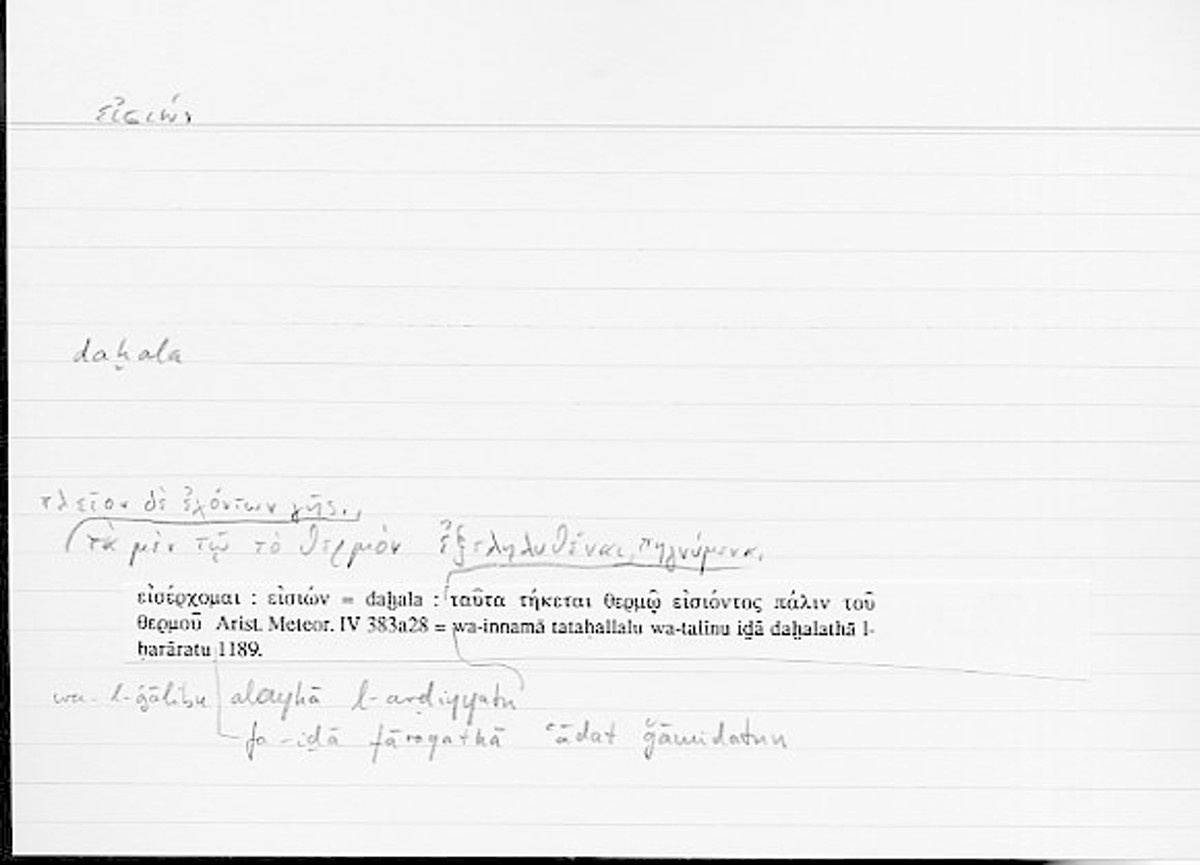 εἰσιών
daḫala
πλεῖον δὲ ἐχόντων γῆς.,
τὰ μὲν τῷ τὸ θερμὸν ἐξεληλυθέναι πηγνύμενα,
εἰσέρχομαι : εἰσιών = daḫala : ταῦτα τήκεται θερμῷ εἰσιόντος πάλιν τοῦ
θερμοῦ Arist. Meteor. IV 383a28 = wa-innamā tataḥallalu wa-talīnu iḏā daḫalathā l-
ḥarāratu 1189.
wa-l-ġālibu alayhā l-arḍiyyatu
fa-iḏā fāraqathā ʿādat ǧāmidatun